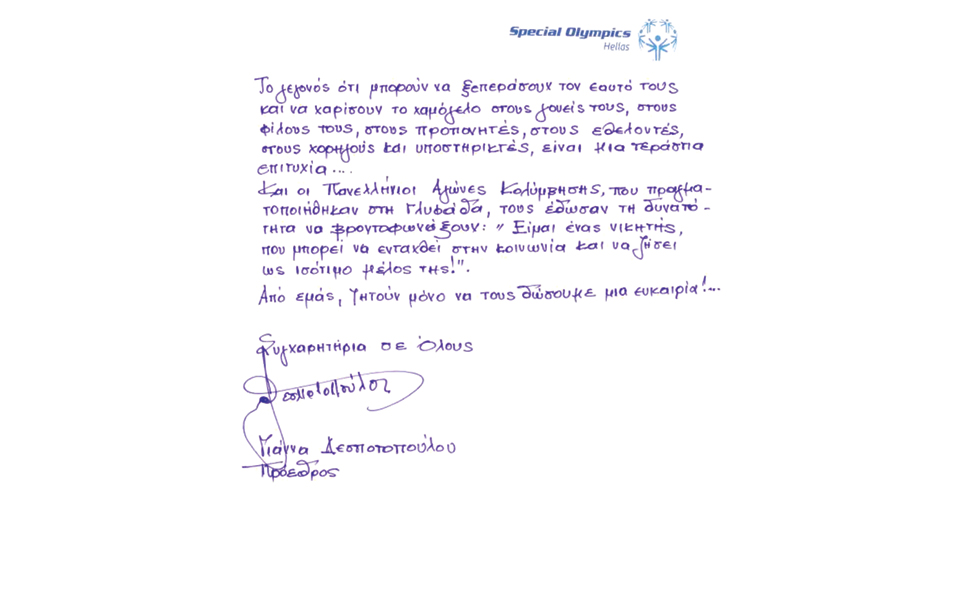 Special Olympics
Hellas
Το γεγονός ότι μπορούν να ξεπεράσουν τον εαυτό τους
και να χαρίσουν το χαμόγελο στους γονείς τους, στους
φίλους τους, στους προπονητές, στους εθελοντές,
στους χορηγούς και υποστηρικτές, είναι μια τεράστια
επιτυχία....
Και οι Πανελλήνιοι Αγώνες Κολύμβησης, που πραγμα-
τοποιήθηκαν στη Γλυφάδα, τους έδωσαν τη δυνατό-
τητα να βροντοφωνάξουν: "Είμαι ένας νικητής,
που μπορεί να ενταχθεί στην κοινωνία και να ζήσει
ως ισότιμο μέλος της!".
Από εμάς, ζητούν μόνο να τους δώσουμε μια ευκαιρία!...
Συγχαρητήρια σε Όλους
Δεσποτοπούλου
Γιάννα Δεσποτοπούλου
Πρόεδρος